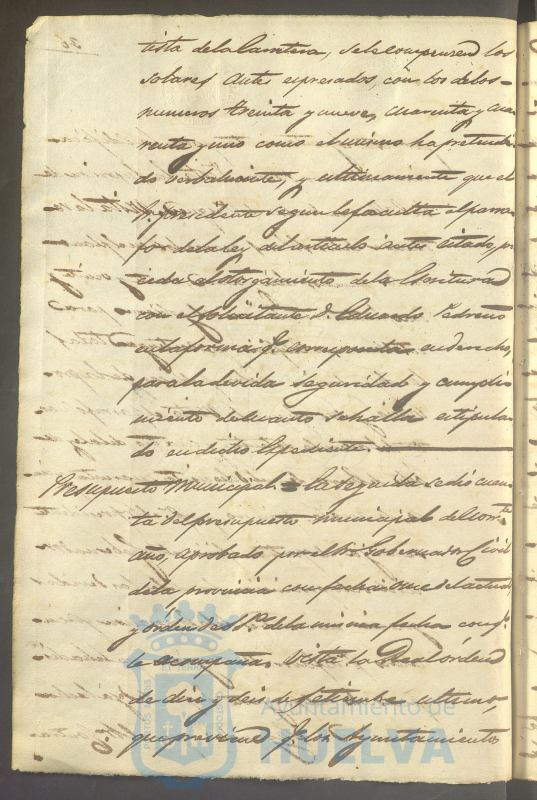 36
tista de la Carretera, se le comprasen los
solares antes espresados, con los de los
numeros treinta y nueve, cuarenta y cua
renta y uno como el mismo ha pretendi
do verbalmente, y ultimamente que el
Sr. presidente segun le faculta el parra
fo de la ley del articulo antes citado, pro
ceda al otorgamiento de la Escritura
con el solicitante D. Eduardo Padreño
en la forma q.e corresponda en derecho,
para la devida seguridad y cumpli
miento de cuanto se halla estipula
do en dicho Espediente.
Presupuesto Municipal = En seguida se dio cuen
ta del presupuesto municipal del corr.te
año, aprobado por el Sr. Gobernador Civil
de la provincia con fecha once del actual,
y orden de S. de la misma fecha con q.e
le acompaña. Vista la Real orden
de diez y seis de setiembre ultimo,
que previene q.e los Ayuntamientos
Ayuntamiento de
HUELVA